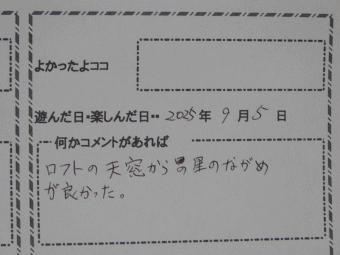 よかったよココ
遊んだ日・楽しんだ日・・ 2025年 9月5日
何かコメントがあれば
ロフトの天窓からの星のながめ
が良かった。